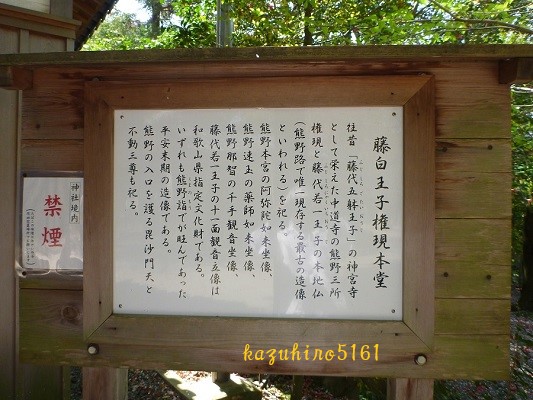 藤白王子権現本堂
往昔「藤代五躰王子」の神宮寺
として栄えた中道寺の熊野三所
権現と藤代若一王子の本地仏
(熊野路で唯一現存する最古の造像
といわれる)を祀る。
熊野本宮の阿弥陀如来坐像、
熊野速玉の薬師如来坐像、
熊野那智の千手観音坐像、
藤代若一王子の十一面観音立像は
和歌山県指定文化財である。
いずれも熊野詣でが旺んであった
平安末期の造像である。
熊野の入口を護る毘沙門天と
不動三尊も祀る。
神社境内
禁煙
kazuhiro5161